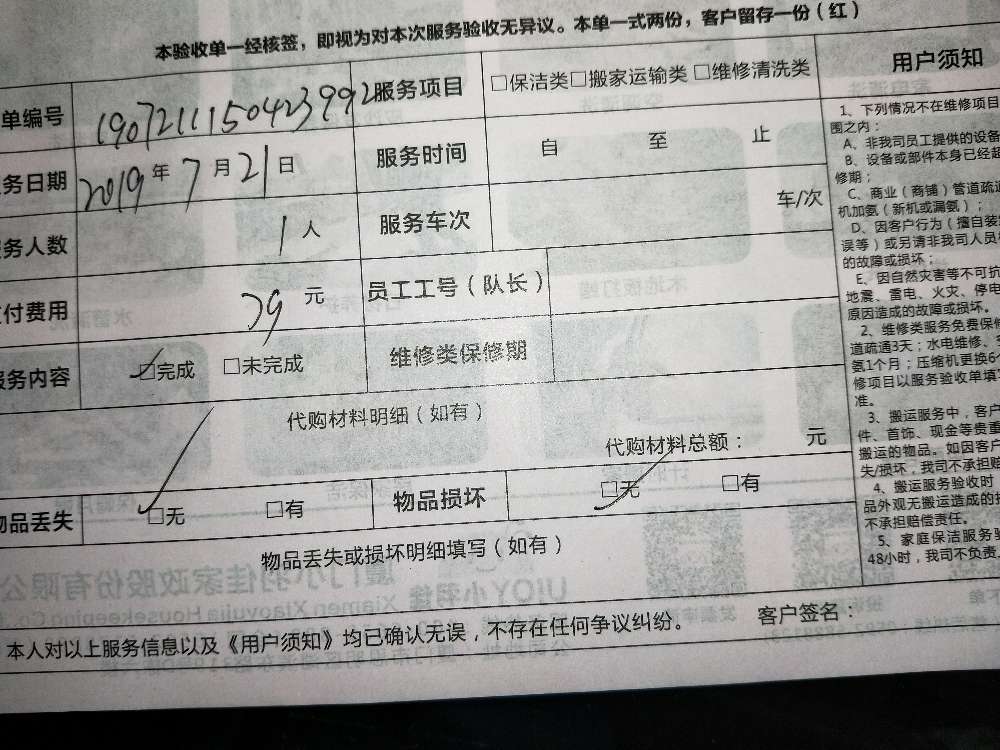 本验收单一经核签，即视为对本次服务验收无异议。本单一式两份，客户留存一份（红）
单编号 1907211150423992 服务项目 □保洁类□搬家运输类 □维修清洗类
务日期 2019年7月21日 服务时间 自 至 止
务人数 1人 服务车次 车/次
付费用 39元 员工工号（队长）
服务内容 ☑完成 □未完成 维修类保修期
代购材料明细（如有）
代购材料总额： 元
物品丢失 ☑无 □有 物品损坏 ☑无 □有
物品丢失或损坏明细填写（如有）
本人对以上服务信息以及《用户须知》均已确认无误，不存在任何争议纠纷。 客户签名：
用户须知
1、下列情况不在维修项目
围之内：
A、非我司员工提供的设备
B、设备或部件本身已经超
修期；
C、商业（商铺）管道疏通
机加氨（新机或漏氨）；
D、因客户行为（擅自装
误等）或另请非我司人员
的故障或损坏；
E、因自然灾害等不可抗
地震、雷电、火灾、停电
原因造成的故障或损坏。
2、维修类服务免费保修
道疏通3天；水电维修、
氨1个月；压缩机更换6
修项目以服务验收单填写
准。
3、搬运服务中，客户
件、首饰、现金等贵重
搬运的物品。如因客户
失/损坏，我司不承担赔
4、搬运服务验收时
品外观无搬运造成的损
不承担赔偿责任。
5、家庭保洁服务验
48小时，我司不负责